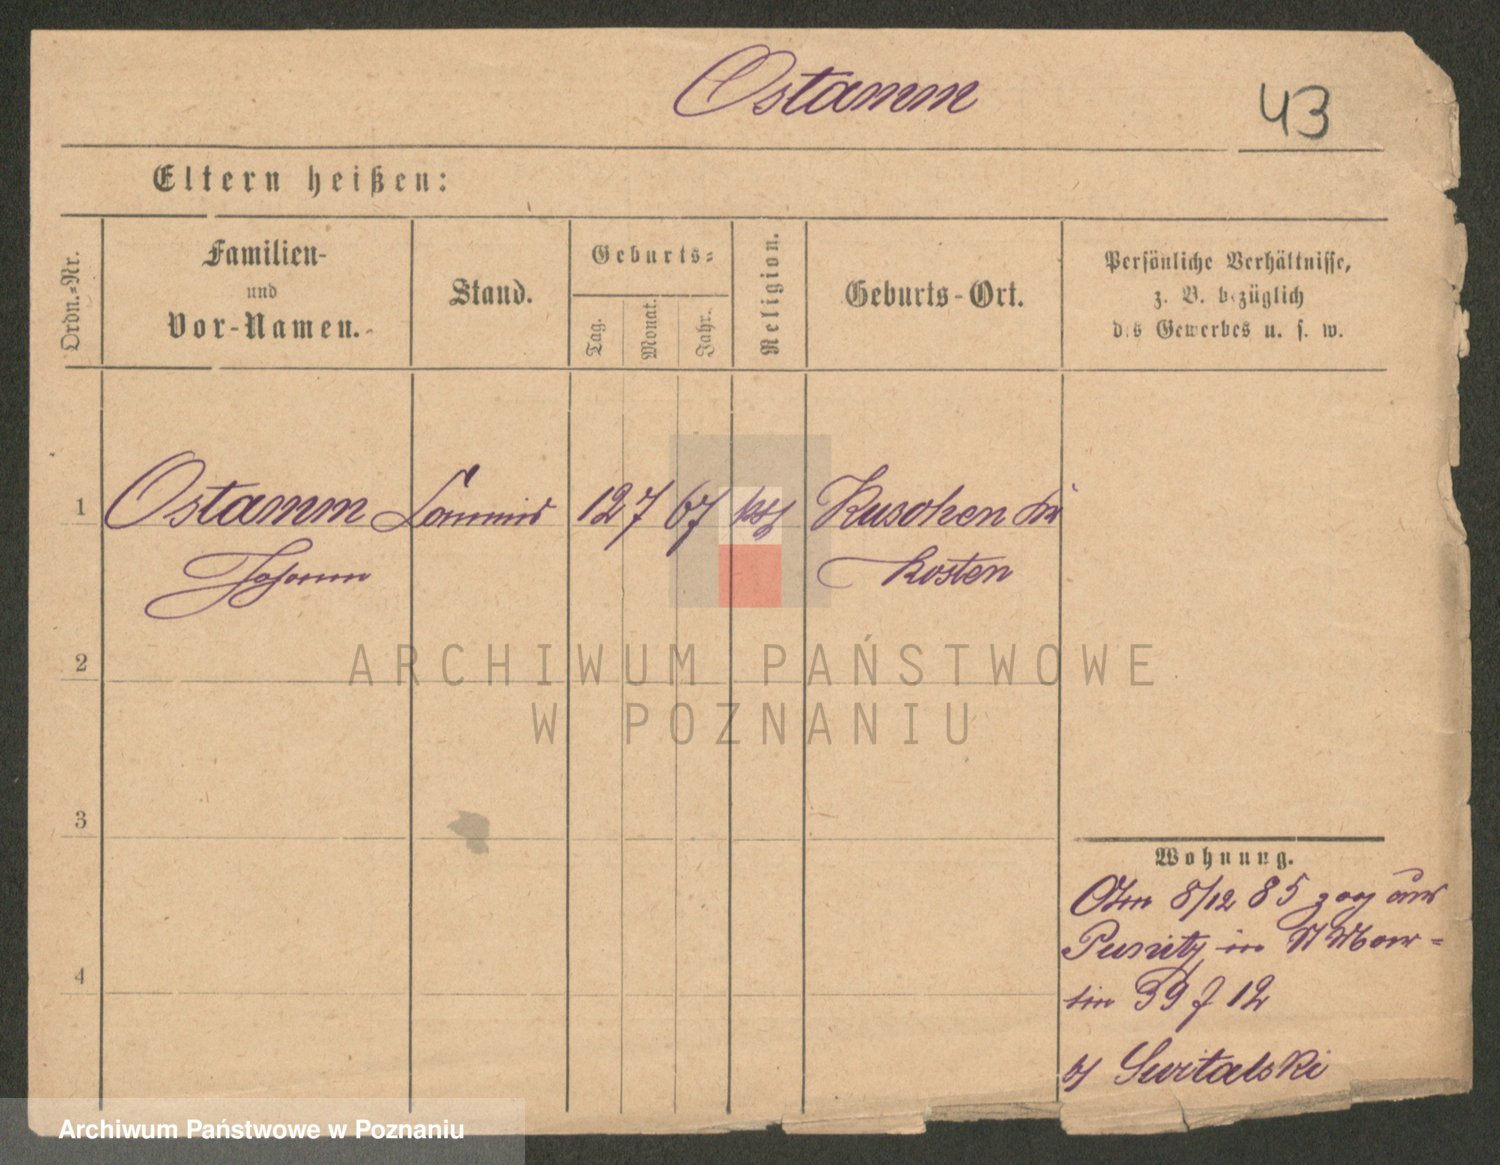 Ostamm
43
Eltern heißen:
Ordn.-Nr.
Familien-
und
Vor-Namen.
Stand.
Geburts-
Tag.
Monat.
Jahr.
Religion.
Geburts-Ort.
Persönliche Verhältnisse,
z. B. bezüglich
des Gewerbes u. s. w.
1 Ostamm 12 7 67 kth Kuschen Kr
Johann Kosten
2
ARCHIWUM PAŃSTWOWE
W POZNANIU
3
4
Wohnung.
Am 8/12 85 zog aus
in St Mar-
tin 39 12
b/ Switalski
Archiwum Państwowe w Poznaniu